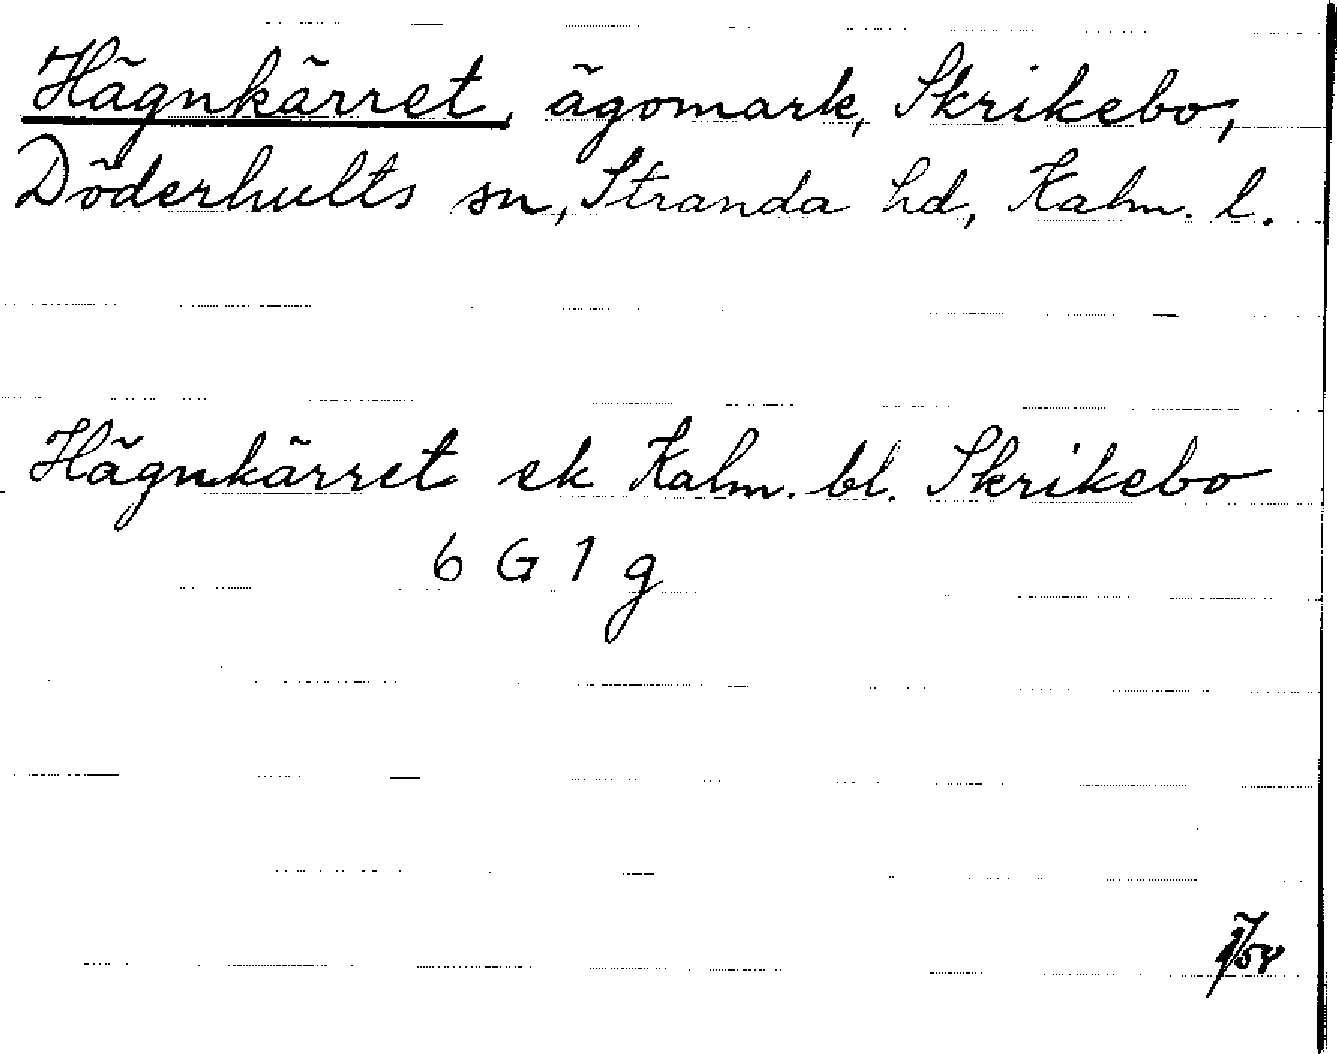 Hägnkärret, ägomark, Skrikebo,
Döderhults sn, Stranda hd, Kalm. l.
Hägnkärret ek Kalm. bl. Skrikebo
6 G 1 g